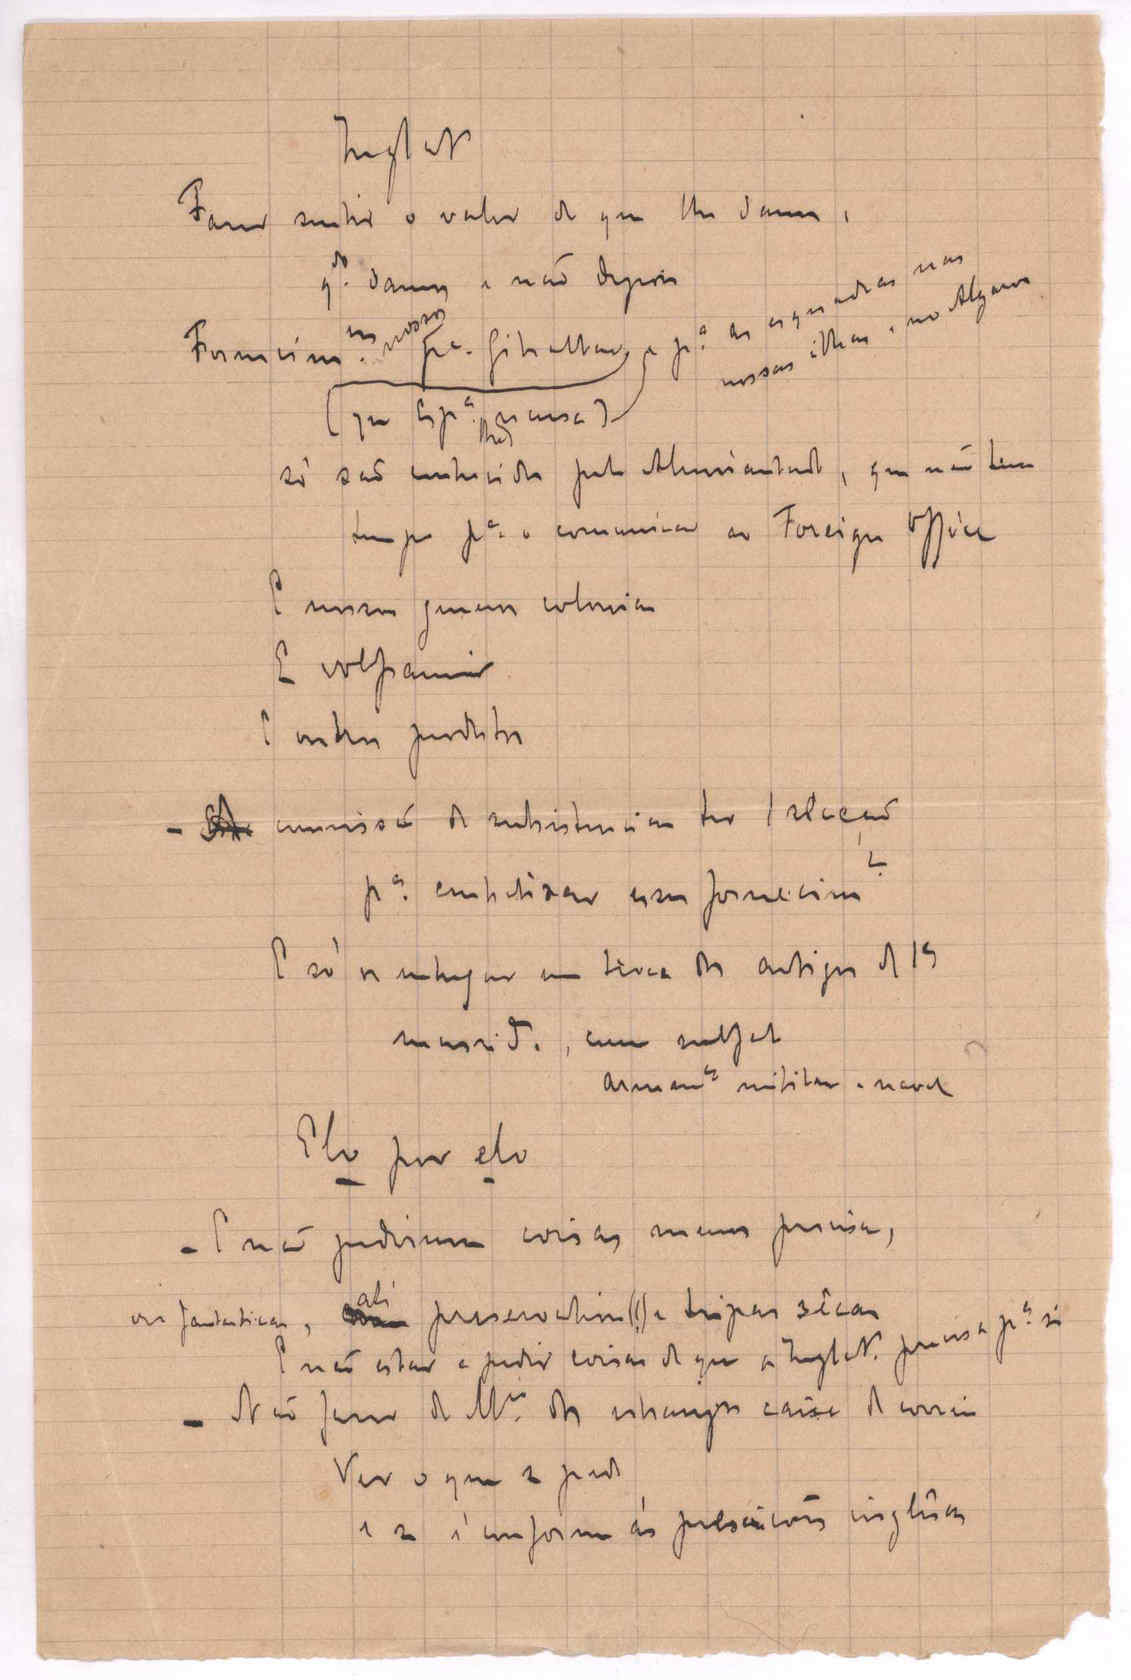 Inglatª
Fazer sentir o valor do que lhe damos,
qdo. damos e não depois
Fornecimtos. nossos pª. Gibraltar, e pª. as esquadras nas
nossas ilhas e no Algarve
(que Espª. recusa)
só são conhecidos pelo Almirantado, que não tem
tempo pª. o comunicar ao Foreign Office
E nossos generos coloniais
E volframio
E outros productos
- comissão de subsistencias ter 1 relação
pª. enfatizar esses fornecimtos
E só os entregar em troca dos artigos de 1ª
necessidª., como sulfato
armamto militar e naval
Elo por elo
- E não pedirmos coisas menos precisas,
ou fantasticas, até preservativos(!) e tripas sêcas
E não estar a pedir coisas de que a Inglatª. precisa pª. si
- Não fazer do Mº. dos estrangrs caixa do correio
Ver o que se pede
e se é conforme ás prescrições inglêsas